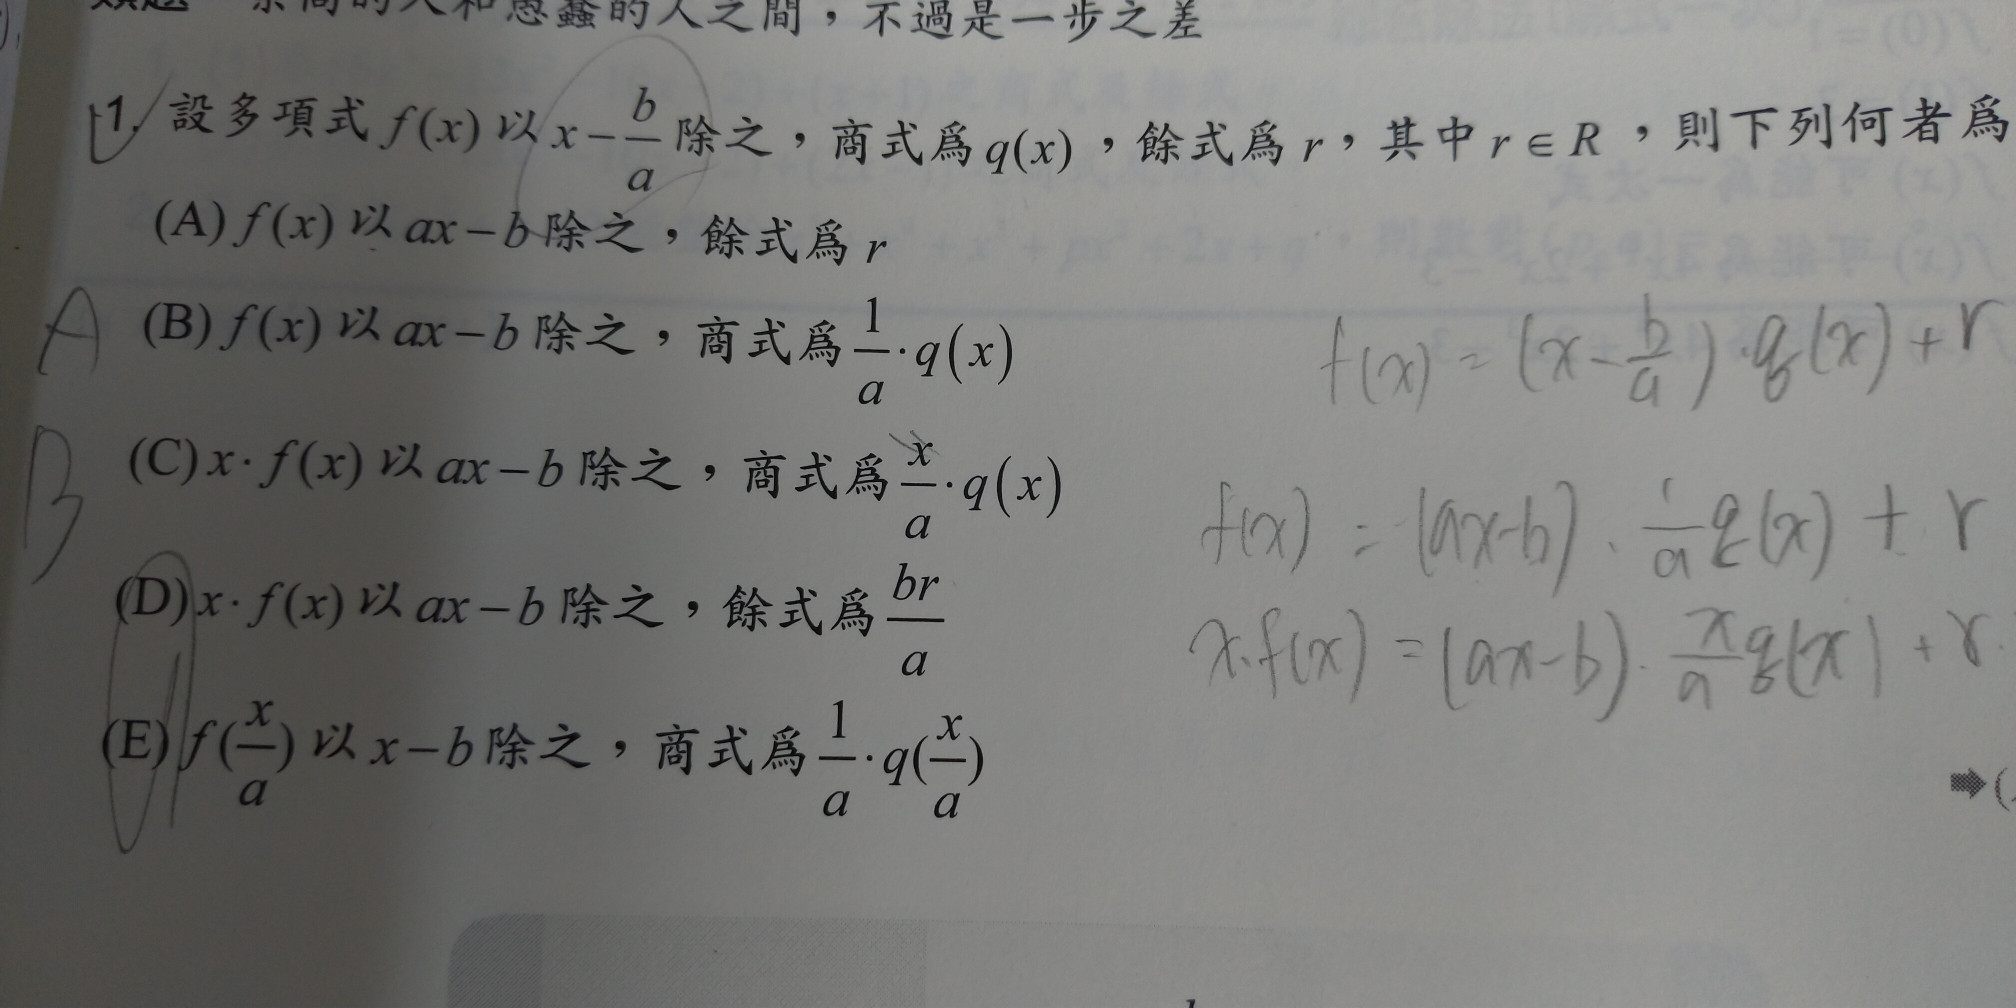 的人和愚蠢的人之間，不過是一步之差
1. 設多項式 f(x) 以 x - b/a 除之，商式為 q(x)，餘式為 r，其中 r ∈ R，則下列何者為
(A) f(x) 以 ax - b 除之，餘式為 r
(B) f(x) 以 ax - b 除之，商式為 1/a · q(x)
(C) x · f(x) 以 ax - b 除之，商式為 x/a · q(x)
(D) x · f(x) 以 ax - b 除之，餘式為 br/a
(E) f(x/a) 以 x - b 除之，商式為 1/a · q(x/a)
A
B
f(x) = (x - b/a) · q(x) + r
f(x) = (ax-b) · 1/a q(x) + r
x·f(x) = (ax-b) · x/a q(x) + r